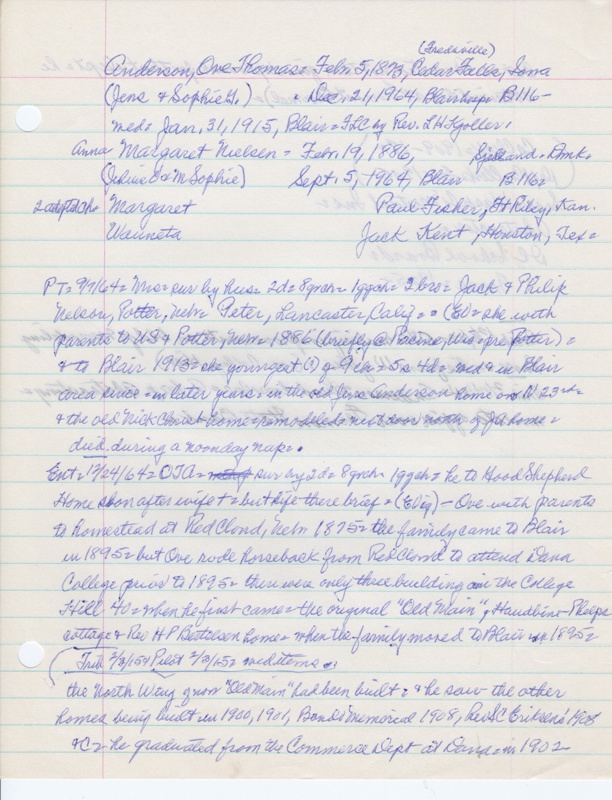 (Fredsville)
Anderson, Ove Thomas = Febr. 5, 1873, Cedar Falls, Iowa
(Jens & Sophie G.) Dec. 21, 1964, Blair hosp. B116-
med = Jan. 31, 1915, Blair = FLC by Rev. LH Kjoller.
Anna Margaret Nielsen = Febr. 19, 1886, Sjelland, Dmk =
M Sophie) Sept. 5, 1964, Blair B116=
2 adopted ch. Margaret Paul Fisher, Ft Riley, Kan.
Wauneta Jack Kent, Houston, Tex =
PT= 9/7/64= Mrs = sur by hus = 2d = 8grch = 1ggch = 2 bro = Jack & Philip
Nelson, Potter, Nebr = Peter, Lancaster, Calif = she with
parents to US & Potter, Nebr = 1886 (briefly @ Racine, Wis = pre Potter) =
& to Blair 1913 = she youngest (?) of 9 ch = 5s 4d = med & in Blair
area since = in later years = in the old Jens Anderson home on N 23rd =
& the old Nick Christ home = remodeled = next door north of JA home =
died during a noonday nap = .
Ent = 12/24/64 = OTA = sur by 2d = 8grch 1ggch = he to Good Shepherd
Home soon after wife + = but life there brief = - Ove with parents
to homestead at Red Cloud, Nebr 1875 = the family came to Blair
in 1895 = but Ove rode horseback from Red Cloud to attend Dana
College prior to 1895 = there were only three building on the College
Hill 40 = when he first came = the original "Old Main", - Phelps
cottage & Rev HP Bertelsen home = when the family moved to Blair in 1895 =
Trib 2/3/15 & Pilot 2/3/15 = med items
the North Wing of now "Old Main" had been built = & he saw the other
homes being built in 1900, 1901, Bondo Memorial 1908, Rev SC Eriksen's 1908
&C = he graduated from the Commerce Dept at Dana = in 1902